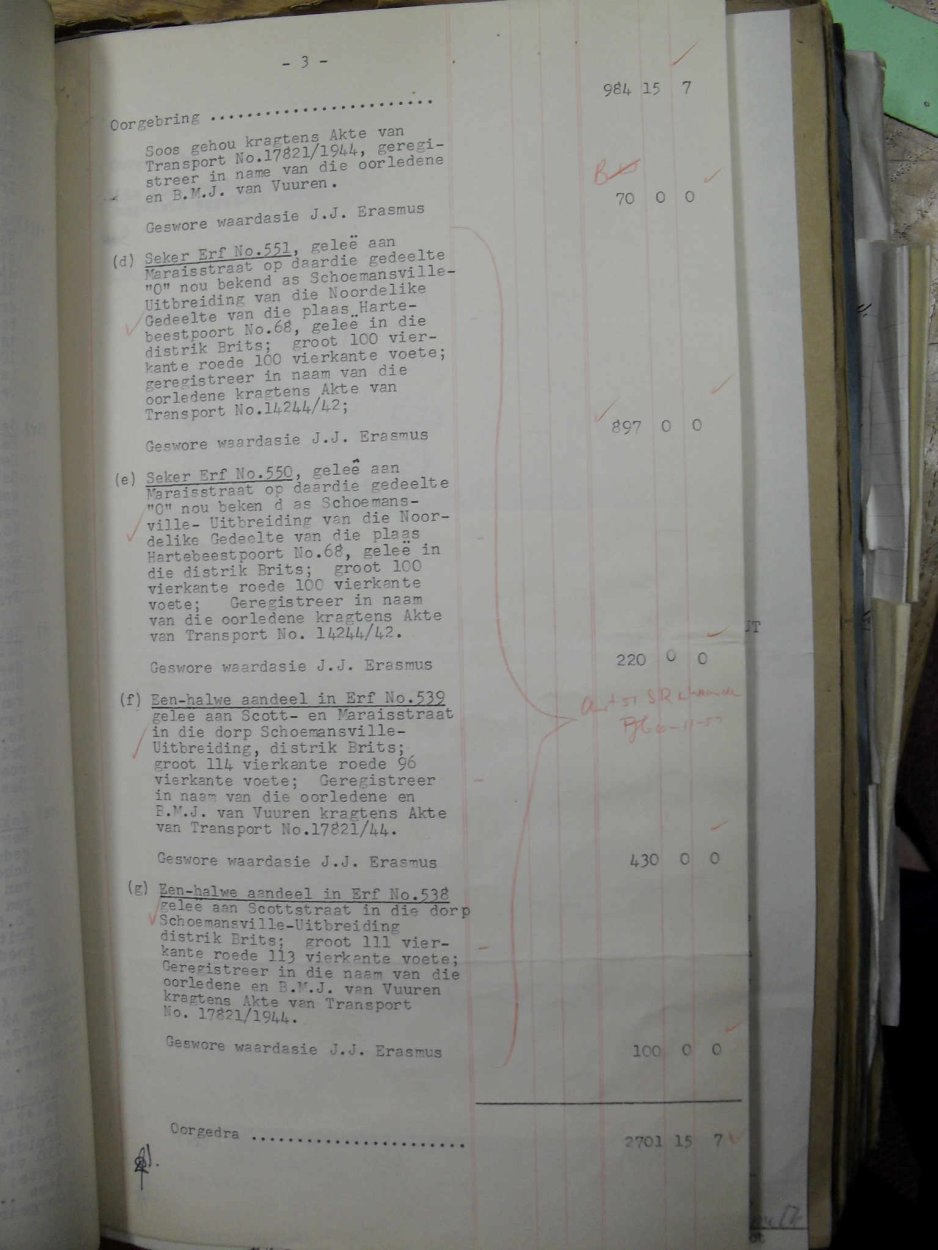 - 3 -
Oorgebring ........................ 984 15 7
Soos gehou kragtens Akte van
Transport No.17821/1944, geregi-
streer in name van die oorledene
en B.M.J. van Vuuren.
Geswore waardasie J.J. Erasmus 70 0 0
(d) Seker Erf No.551, geleë aan
Maraisstraat op daardie gedeelte
"O" nou bekend as Schoemansville-
Uitbreiding van die Noordelike
Gedeelte van die plaas Harte-
beestpoort No.68, geleë in die
distrik Brits; groot 100 vier-
kante roede 100 vierkante voete;
geregistreer in naam van die
oorledene kragtens Akte van
Transport No.14244/42;
Geswore waardasie J.J. Erasmus 897 0 0
(e) Seker Erf No.550, geleê aan
Maraisstraat op daardie gedeelte
"O" nou beken d as Schoemans-
ville- Uitbreiding van die Noor-
delike Gedeelte van die plaas
Hartebeestpoort No.68, geleë in
die distrik Brits; groot 100
vierkante roede 100 vierkante
voete; Geregistreer in naam
van die oorledene kragtens Akte
van Transport No. 14244/42.
Geswore waardasie J.J. Erasmus 220 0 0
(f) Een-halwe aandeel in Erf No.539
gelee aan Scott- en Maraisstraat
in die dorp Schoemansville-
Uitbreiding, distrik Brits;
groot 114 vierkante roede 96
vierkante voete; Geregistreer
in naam van die oorledene en
B.M.J. van Vuuren kragtens Akte
van Transport No.17821/44.
Geswore waardasie J.J. Erasmus 430 0 0
(g) Een-halwe aandeel in Erf No.538
geleë aan Scottstraat in die dorp
Schoemansville-Uitbreiding
distrik Brits; groot 111 vier-
kante roede 113 vierkante voete;
Geregistreer in die naam van die
oorledene en B.M.J. van Vuuren
kragtens Akte van Transport
No. 17821/1944.
Geswore waardasie J.J. Erasmus 100 0 0
Oorgedra ....................... 2701 15 7